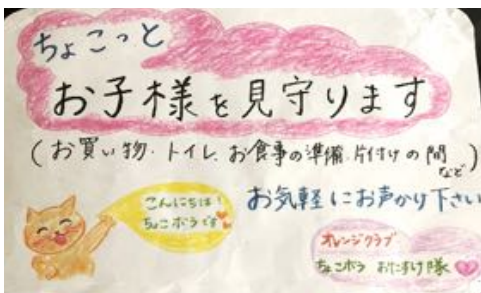 ちょこっと
お子様を見守ります
(お買い物・トイレ、お食事の準備・片付けの間など)
お気軽にお声かけ下さい
こんにちは!
ちょこボラです
オレンジクラブ
ちょこボラ おたすけ隊